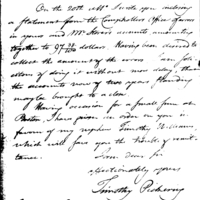 On the 20th ult. I sent you inclosing
a statement from the Comptroller's Office of errors
in yours and Mr. accounts amounting
together to 97 dollars. Having been desired to
collect the amount of the errors I am
of doing it without more delay, that
the accounts now of two years standing
may be brought to a close.
Having occasion for a small sum at
Boston, I have given an order on you in
favour of my nephew Timothy Williams
which will save you the trouble of remit-
tance.
I am Dear Sir
affectionately yours
Timothy Pickering